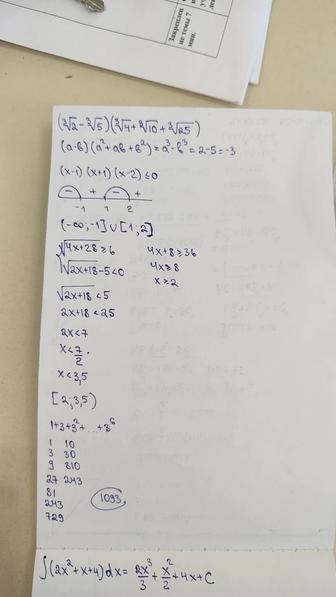 (∛2-∛5)(∛4+∛10+∛25)
(a-b)(a²+ab+b²)=a³-b³=2-5=-3
(x-1)(x+1)(x-2)≤0
- + - +
-1 1 2
(-∞;-1]∪[1;2]
√4x+28≥6 4x+8≥36
√2x+18-5<0 4x≥8
x≥2
√2x+18<5
2x+18<25
2x<7
x<7/2.
x<3,5
[2,3,5)
1+3+3²+...+3⁶
1 10
3 30
9 810
27 243
81
243
729
1093
∫(2x²+x+4)dx=2x³/3+x²/2+4x+C